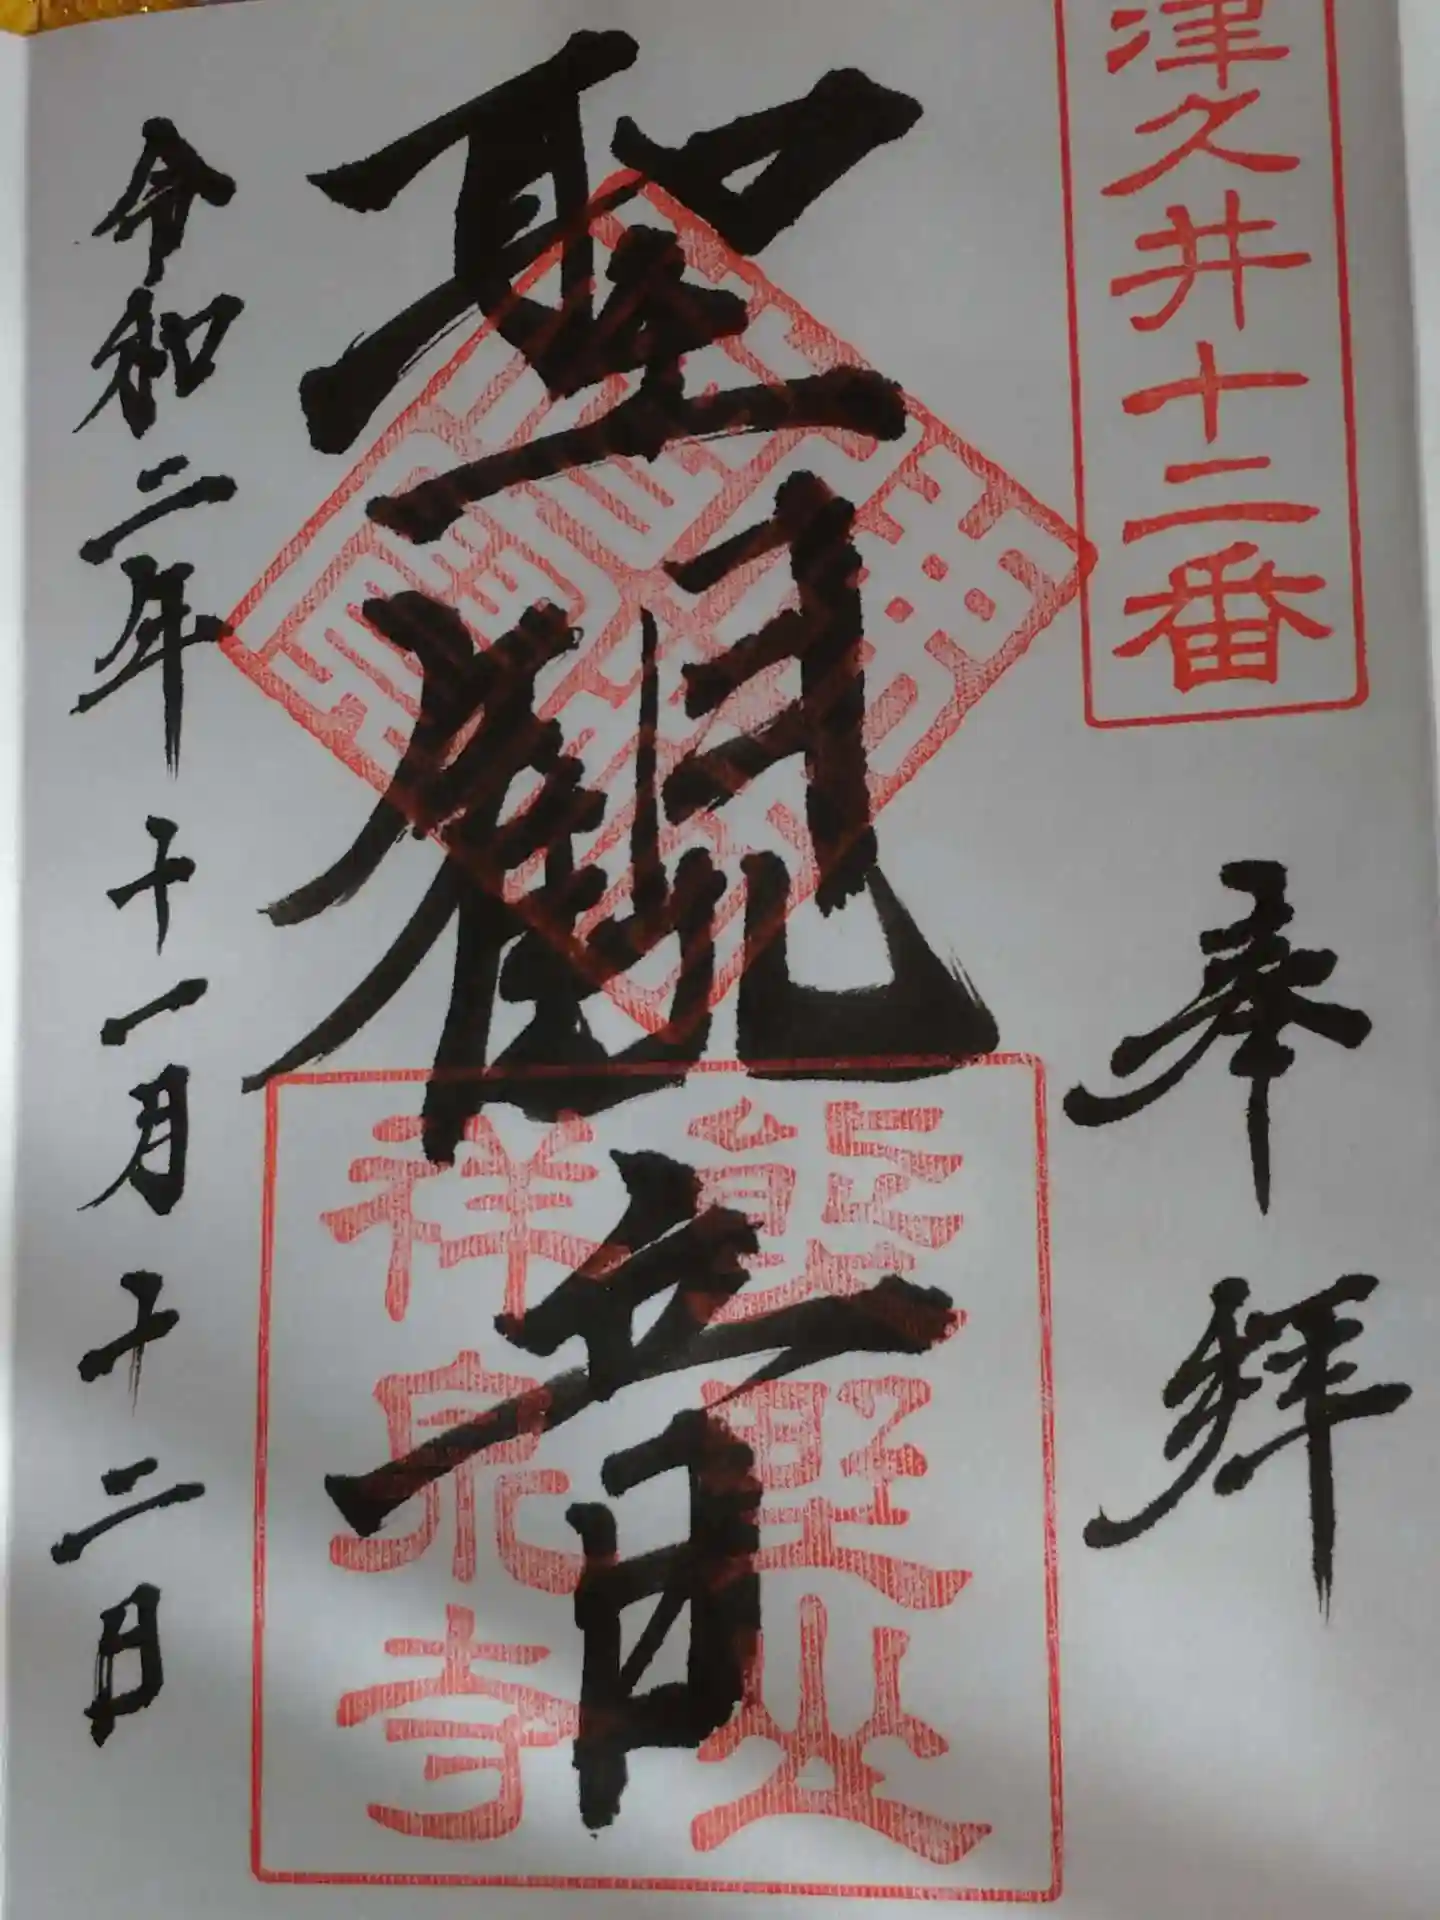 津久井十二番
奉拝
聖觀音
熊野山
祥泉寺
令和二年十一月十二日